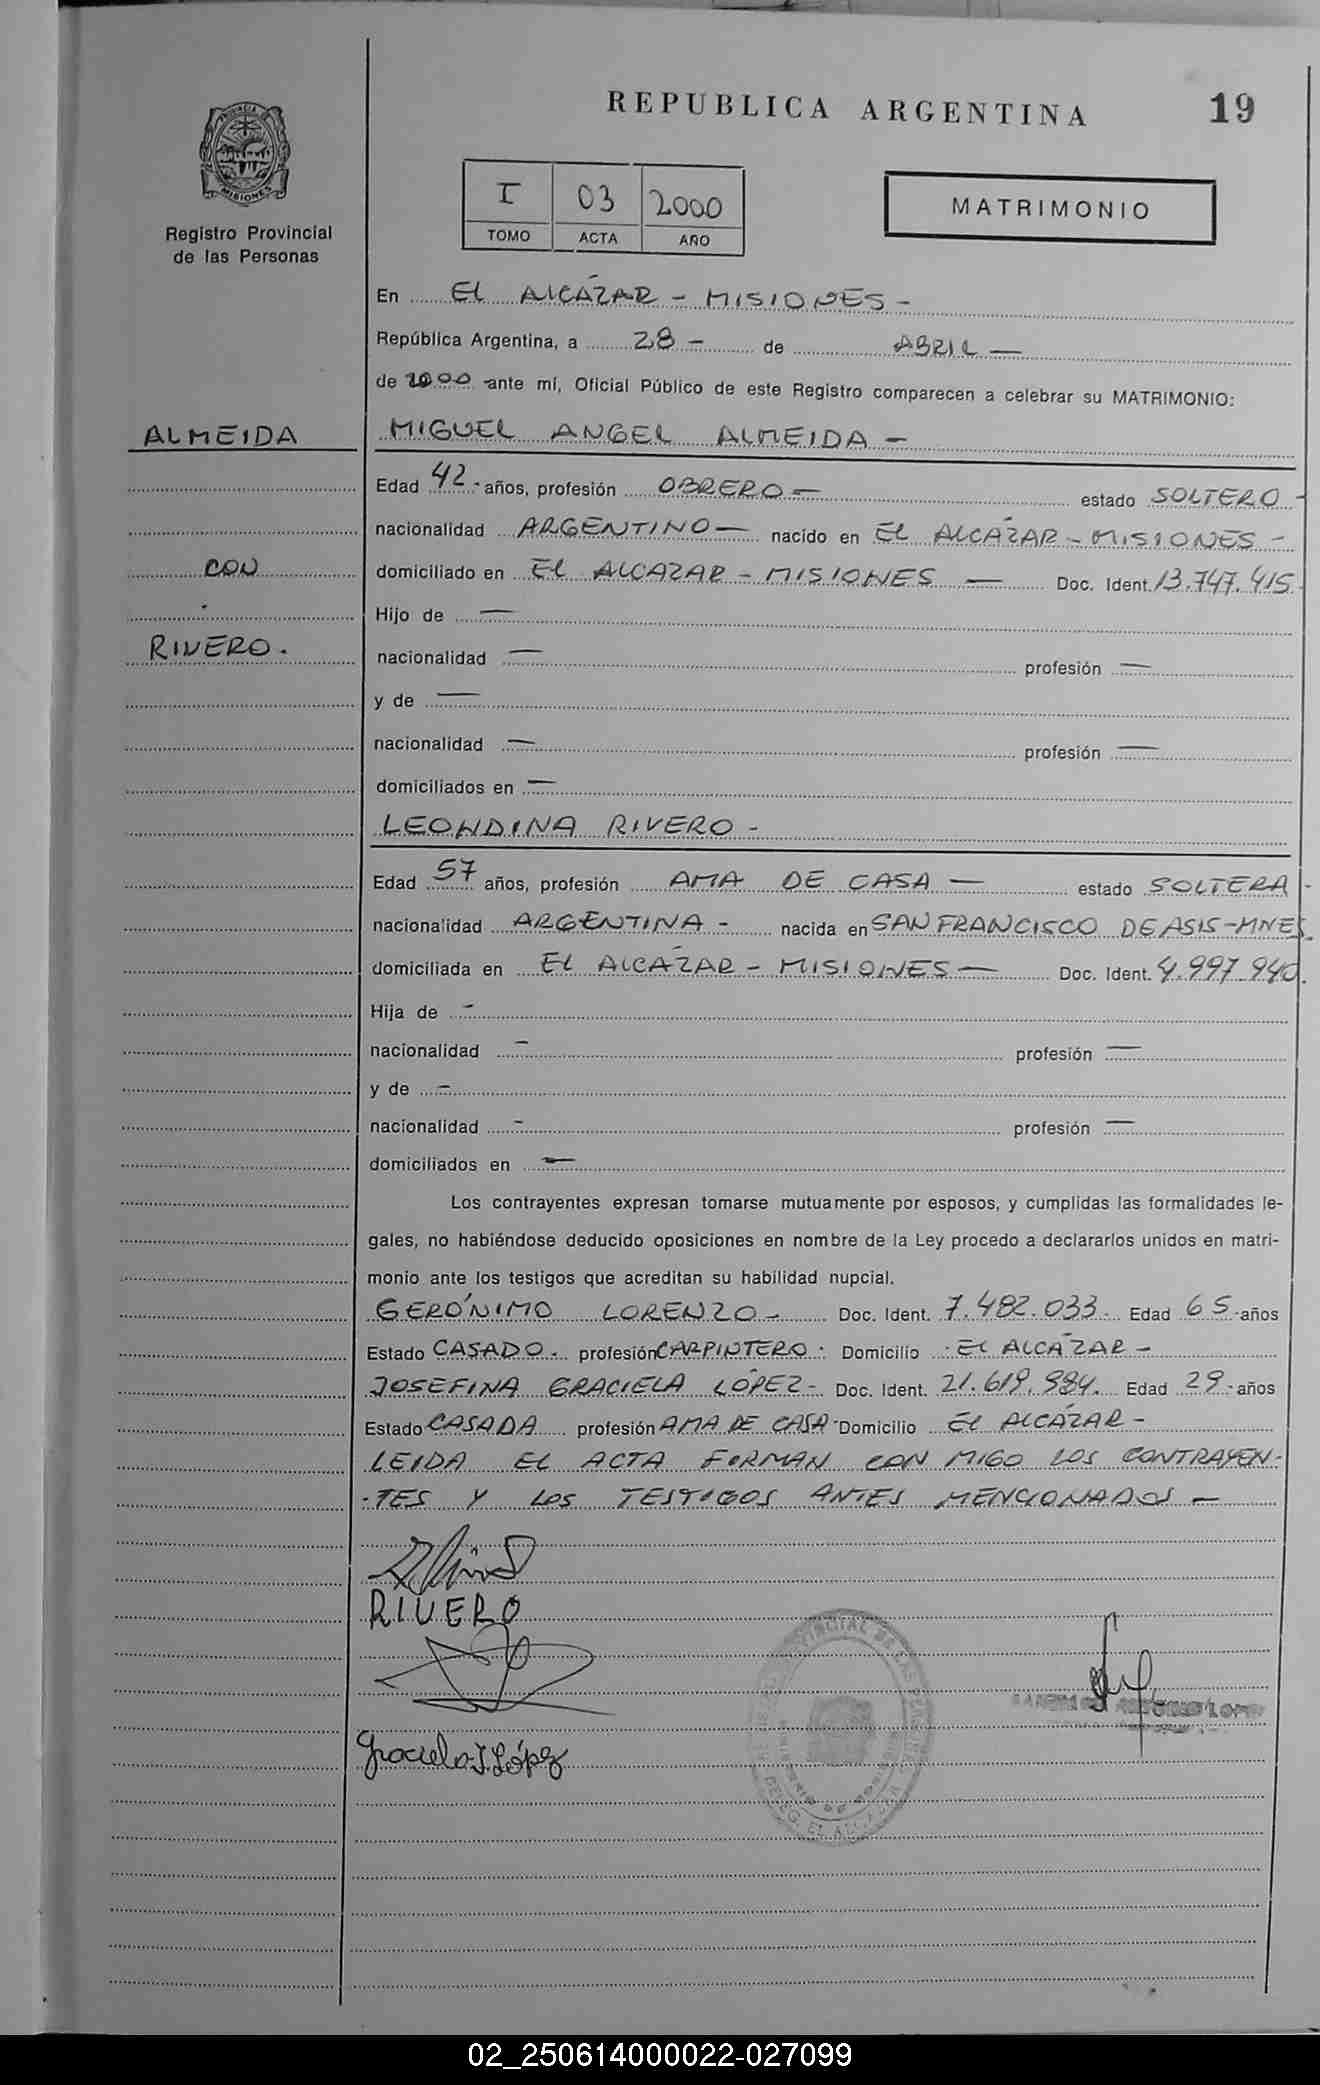 REPUBLICA ARGENTINA 19
PROVINCIA
MISIONES
Registro Provincial
de las Personas
I 03 2000
TOMO ACTA AÑO
MATRIMONIO
En EL ALCÁZAR - MISIONES -
República Argentina, a 28 - de ABRIL —
de 2000 ante mí, Oficial Público de este Registro comparecen a celebrar su MATRIMONIO:
ALMEIDA
CON
RIVERO.
MIGUEL ANGEL ALMEIDA -
Edad 42 - años, profesión OBRERO - estado SOLTERO -
nacionalidad ARGENTINO — nacido en EL ALCÁZAR - MISIONES -
domiciliado en EL ALCAZAR - MISIONES — Doc. Ident. 13.747.415.
Hijo de —
nacionalidad — profesión —
y de —
nacionalidad — profesión —
domiciliados en —
LEONDINA RIVERO -
Edad 57 años, profesión AMA DE CASA — estado SOLTERA -
nacionalidad ARGENTINA - nacida en SAN FRANCISCO DE ASIS - MNES.
domiciliada en EL ALCÁZAR - MISIONES — Doc. Ident. 4.997.940.
Hija de -
nacionalidad - profesión —
y de -
nacionalidad - profesión —
domiciliados en —
Los contrayentes expresan tomarse mutuamente por esposos, y cumplidas las formalidades le-
gales, no habiéndose deducido oposiciones en nombre de la Ley procedo a declararlos unidos en matri-
monio ante los testigos que acreditan su habilidad nupcial.
GERÓNIMO LORENZO - Doc. Ident. 7.482.033. Edad 65 - años
Estado CASADO. profesión CARPINTERO. Domicilio EL ALCÁZAR -
JOSEFINA GRACIELA LÓPEZ - Doc. Ident. 21.619.984. Edad 29 - años
Estado CASADA profesión AMA DE CASA Domicilio EL ALCÁZAR -
LEIDA EL ACTA FIRMAN CON MIGO LOS CONTRAYEN-
-TES Y LOS TESTIGOS ANTES MENCIONADOS -
RIVERO
Graciela J. López
PROVINCIAL DE LAS PERSONAS
DELEG. EL ALCAZAR
LOPEZ
02_250614000022-027099